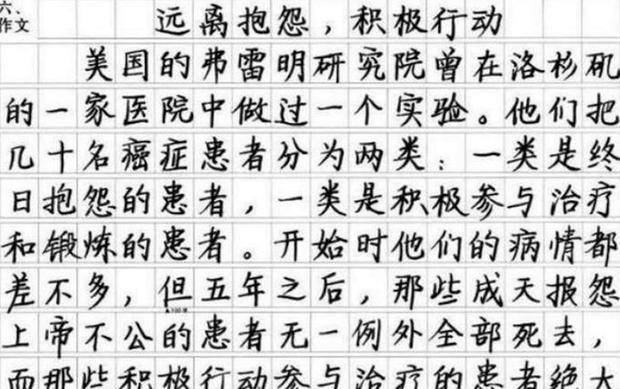 六、
作文
远离抱怨，积极行动
美国的弗雷明研究院曾在洛杉矶
的一家医院中做过一个实验。他们把
几十名癌症患者分为两类：一类是终
日抱怨的患者，一类是积极参与治疗
和锻炼的患者。开始时他们的病情都
差不多，但五年之后，那些成天报怨
上帝不公的患者无一例外全部死去，
而那些积极行动参与治疗的患者绝大